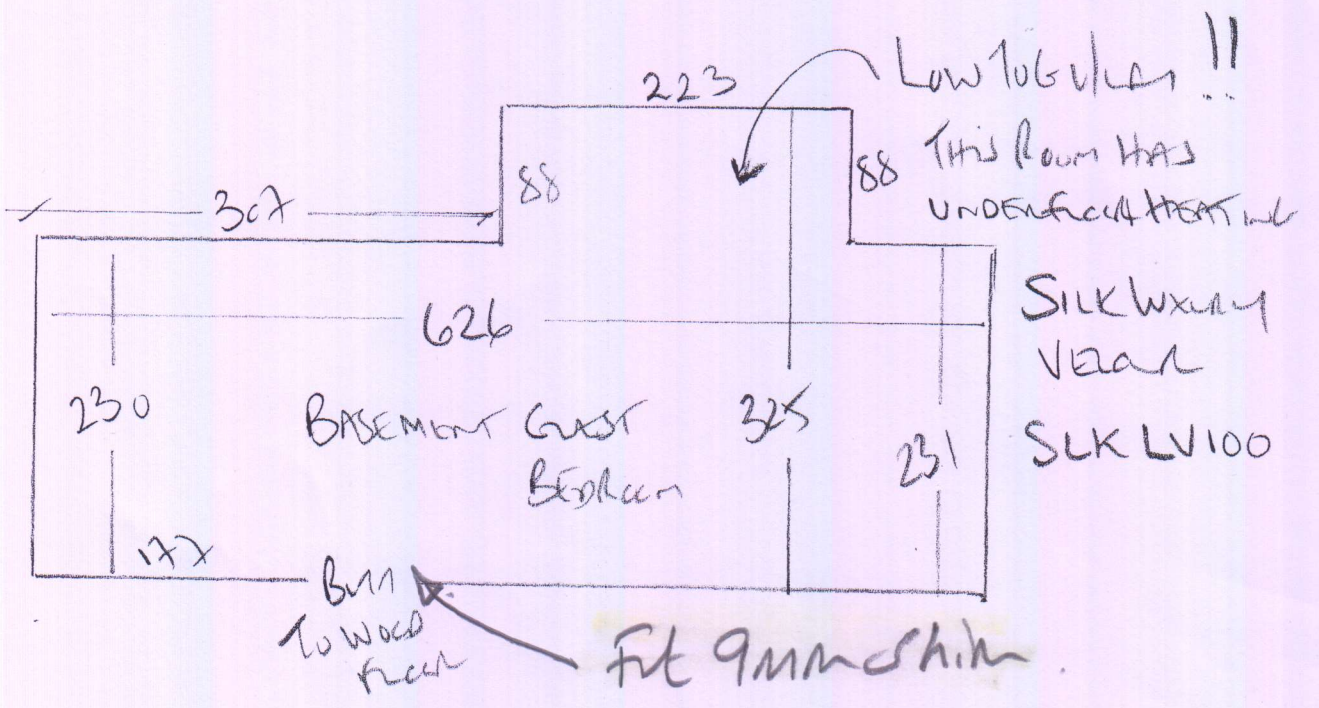 223
LOW TOG U/LAY !!
THIS ROOM HAS
UNDERFLOOR HEATING
88
88
307
626
SILK LUXURY
VELOUR
SLK LV100
230
BASEMENT GUEST
BEDROOM
325
231
177
BUTT
TO WOOD
FLOOR
Fit 9mm shim